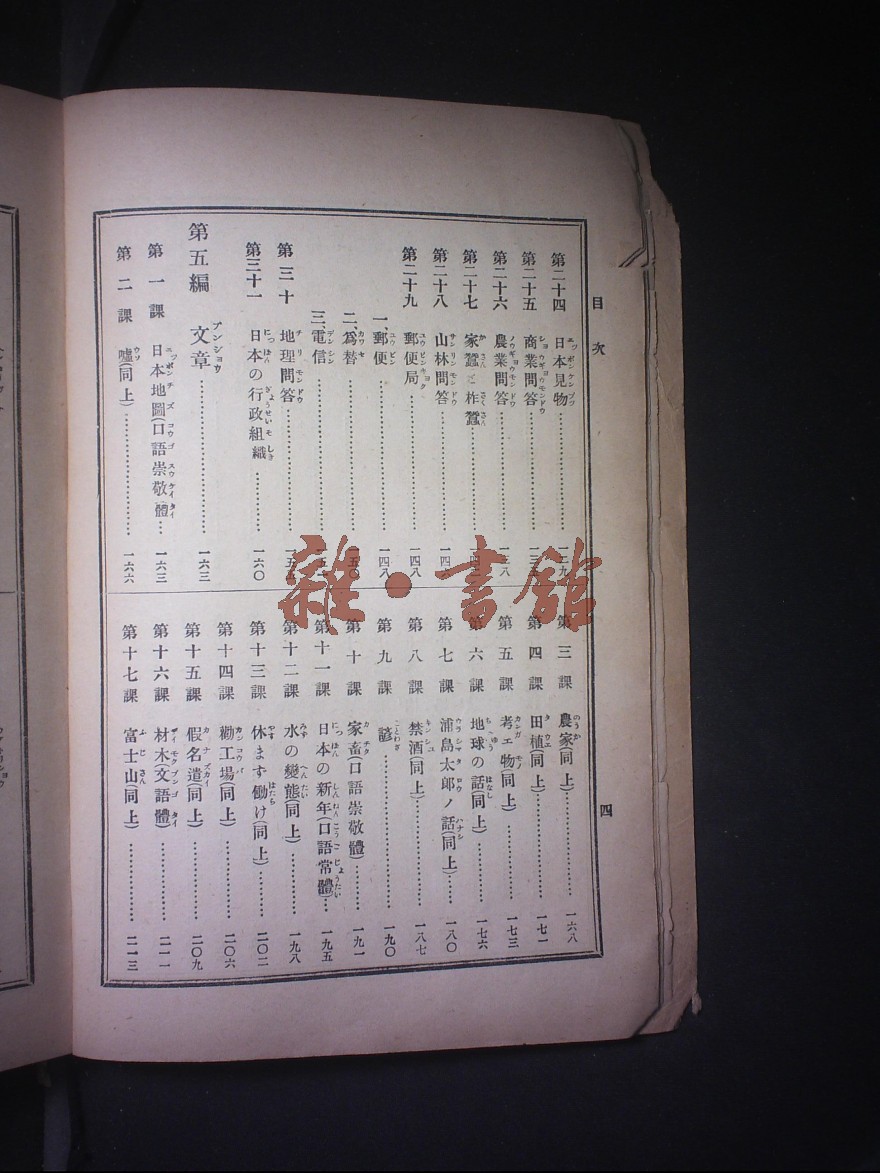 目次
第二十四 日本見物
第二十五 商業問答
第二十六 農業問答 一三八
第二十七 家蠶と柞蠶
第二十八 山林問答
第二十九 郵便局 一四八
一、郵便 一四八
二、爲替 一五〇
三、電信
第三十 地理問答
第三十一 日本の行政組織 一六〇
第五編 文章 一六三
第一課 日本地圖(口語崇敬體) 一六三
第二課 嘘(同上) 一六六
第三課 農家(同上) 一六八
第四課 田植(同上) 一七一
第五課 考エ物(同上) 一七三
第六課 地球の話(同上) 一七六
第七課 浦島太郎ノ話(同上) 一八〇
第八課 禁酒(同上) 一八七
第九課 諺 一九〇
第十課 家畜(口語崇敬體) 一九一
第十一課 日本の新年(口語常體) 一九五
第十二課 水の變態(同上) 一九八
第十三課 休まず働け(同上) 二〇二
第十四課 勸工場(同上) 二〇六
第十五課 假名遣(同上) 二〇九
第十六課 材木(文語體) 二一一
第十七課 富士山(同上) 二一三
四
雜·書館